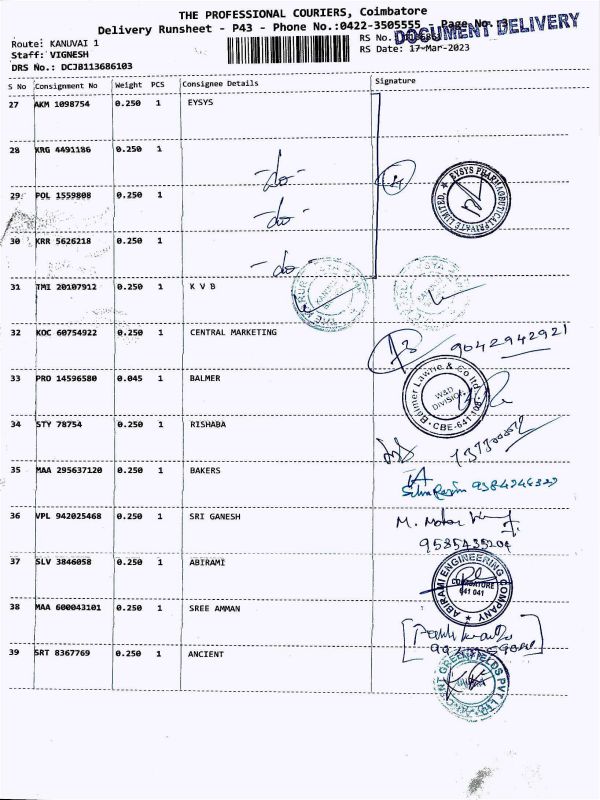 THE PROFESSIONAL COURIERS, Coimbatore
Delivery Runsheet - P43 - Phone No.:0422-3505555 Page No.
DOCUMENT DELIVERY
Route: KANUVAI 1
RS No.
Staff: VIGNESH
RS Date: 17-Mar-2023
DRS No.: DCJB113686103
S No Consignment No Weight PCS Consignee Details Signature
27 AKM 1098754 0.250 1 EYSYS
28 KRG 4491186 0.250 1
-do-
EYSYS PHARMACEUTICAL PRIVATE LIMITED,
29 POL 1559808 0.250 1
-do-
30 KRR 5626218 0.250 1
-do-
31 TMI 20107912 0.250 1 K V B
32 KOC 60754922 0.250 1 CENTRAL MARKETING
9042942921
33 PRO 14596580 0.045 1 BALMER
Balmer Lawrie & Co ltd
W&D DIVISION
CBE-641
34 STY 78754 0.250 1 RISHABA
35 MAA 295637120 0.250 1 BAKERS
36 VPL 942025468 0.250 1 SRI GANESH
M. Motor
37 SLV 3846058 0.250 1 ABIRAMI
ABIRAMI ENGINEERING COMPANY
COIMBATORE
641 041
38 MAA 600043101 0.250 1 SREE AMMAN
39 SRT 8367769 0.250 1 ANCIENT
GREENFIELDS PVT LTD